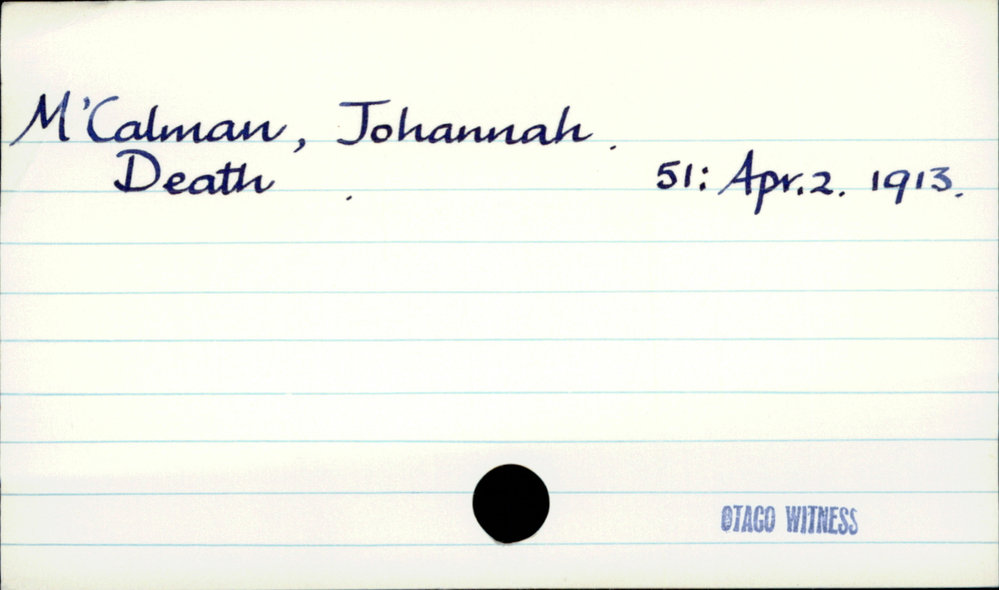 M'Calman, Johannah.
Death. 51: Apr. 2. 1913.
OTAGO WITNESS